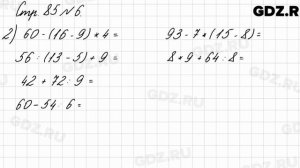 Стр. 85 № 6.
GDZ.RU
2) 60 - (16 - 9) * 4 =
93 - 7 * (15 - 8) =
56 : (13 - 5) + 9 =
8 * 9 + 64 : 8 =
42 + 72 : 9 =
60 - 54 : 6 =